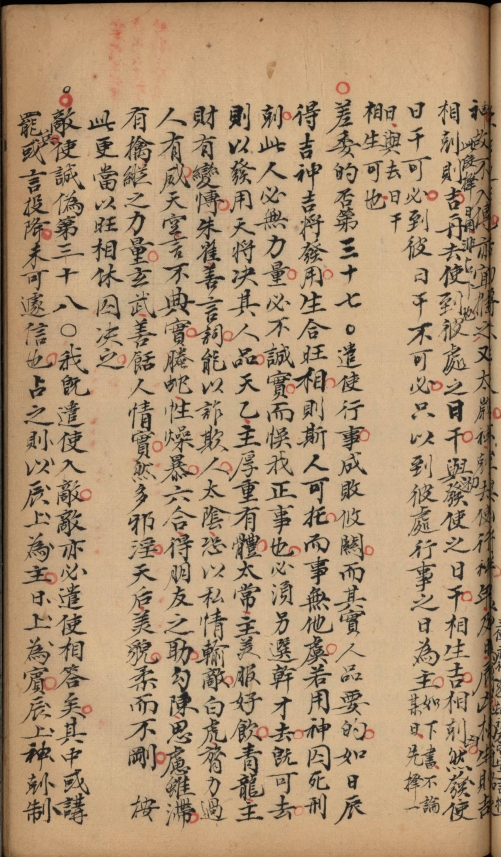 相剋則吉再去使到彼處之日干與發使之日干相生吉相剋然發使
日干可必到彼日干不可必只以到彼處行事之日為主
日與去日干
相生可也
差委的否第三十七〇遣使行事成敗攸關而其實人品要的如日辰
得吉神吉將發用生合旺相則斯人可托而事無他虞若用神囚死刑
剋此人必無力量必不誠實而悮我正事也必須另選幹才去既可去
則以發用天將决其人品天乙主厚重有體太常主美服好飲青龍主
財有變慱朱雀善言詞能以詐欺人太陰恐以私情輸敵白虎膂力過
人有威天空言不典實騰蛇性燥暴六合得朋友之助勾陳思慮雖滯
有擒縱之力量玄武善餂人情實然多邪淫天后美貌柔而不剛 按
此更當以旺相休囚决之
敵使誠偽第三十八〇我既遣使入敵敵亦必遣使相答矣其中或講
罷或言投降未可遽信也占之則以辰上為主日上為賓辰上神剋制